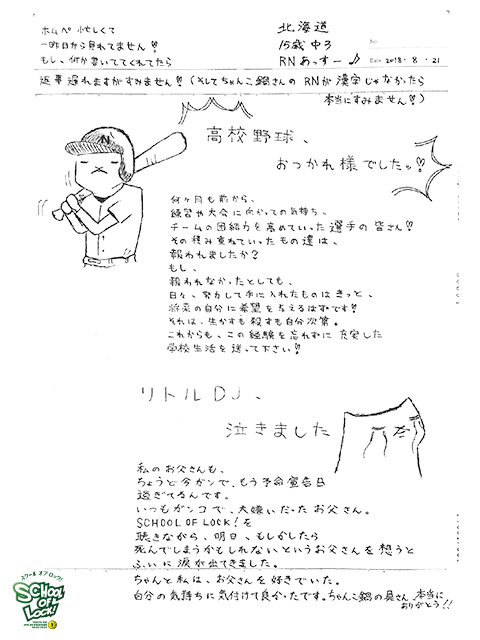 ホムペ 忙しくて
一昨日から見れてません♡
もし、何か書いててくれてたら
返事遅れますがすみません♡(そしてちゃんこ鍋さんの RNが漢字じゃなかったら
本当にすみません♡)
北海道
15歳 中3
RN あっすー♪
No
Date 2018・8・21
高校野球、
おつかれ様でしたッ♡
N
何ヶ月も前から、
練習や大会に向かっての気持ち、
チームの団結力を高めていった選手の皆さん!
その積み重ねていったもの達は、
報われましたか?
もし、
報われなかったとしても、
日々、努力して手に入れたものはきっと、
将来の自分に希望を与えるはずです!
それは、生かすも殺すも自分次第。
これからも、この経験を忘れずに充実した
学校生活を送って下さい!
リトルDJ、
泣きました
私のお父さんも、
ちょうど今ガンで、もう予命宣告日
過ぎてるんです。
いつもガンコで、大嫌いだったお父さん。
SCHOOL OF LOCK!を
聴きながら、明日、もしかしたら
死んでしまうかもしれないというお父さんを想うと
ふいに涙が出てきました。
ちゃんと私は、お父さんを好きでいた。
自分の気持ちに気付けて良かったです。ちゃんこ鍋の具さん 本当に
ありがとう!!
スクール オブ ロック!
SCHOOL
OF
LOCK!